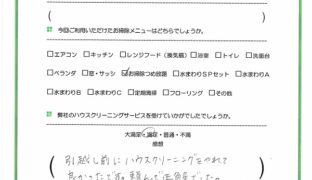 ( )
◆今回ご利用いただけたお掃除メニューはどちらでしょうか。
□エアコン □キッチン □レンジフード(換気扇) □浴室 □トイレ □洗面台
□ベランダ □窓・サッシ ☑お掃除つめ放題 □水まわりSPセット □水まわりA
□水まわりB □水まわりC □定期清掃 □フローリング □その他
◆弊社のハウスクリーニングサービスを受けていかがでしたでしょうか。
大満足・満足・普通・不満
感想
引越し前にハウスクリーニングをやれて
良かったです。頼んで正解でした。